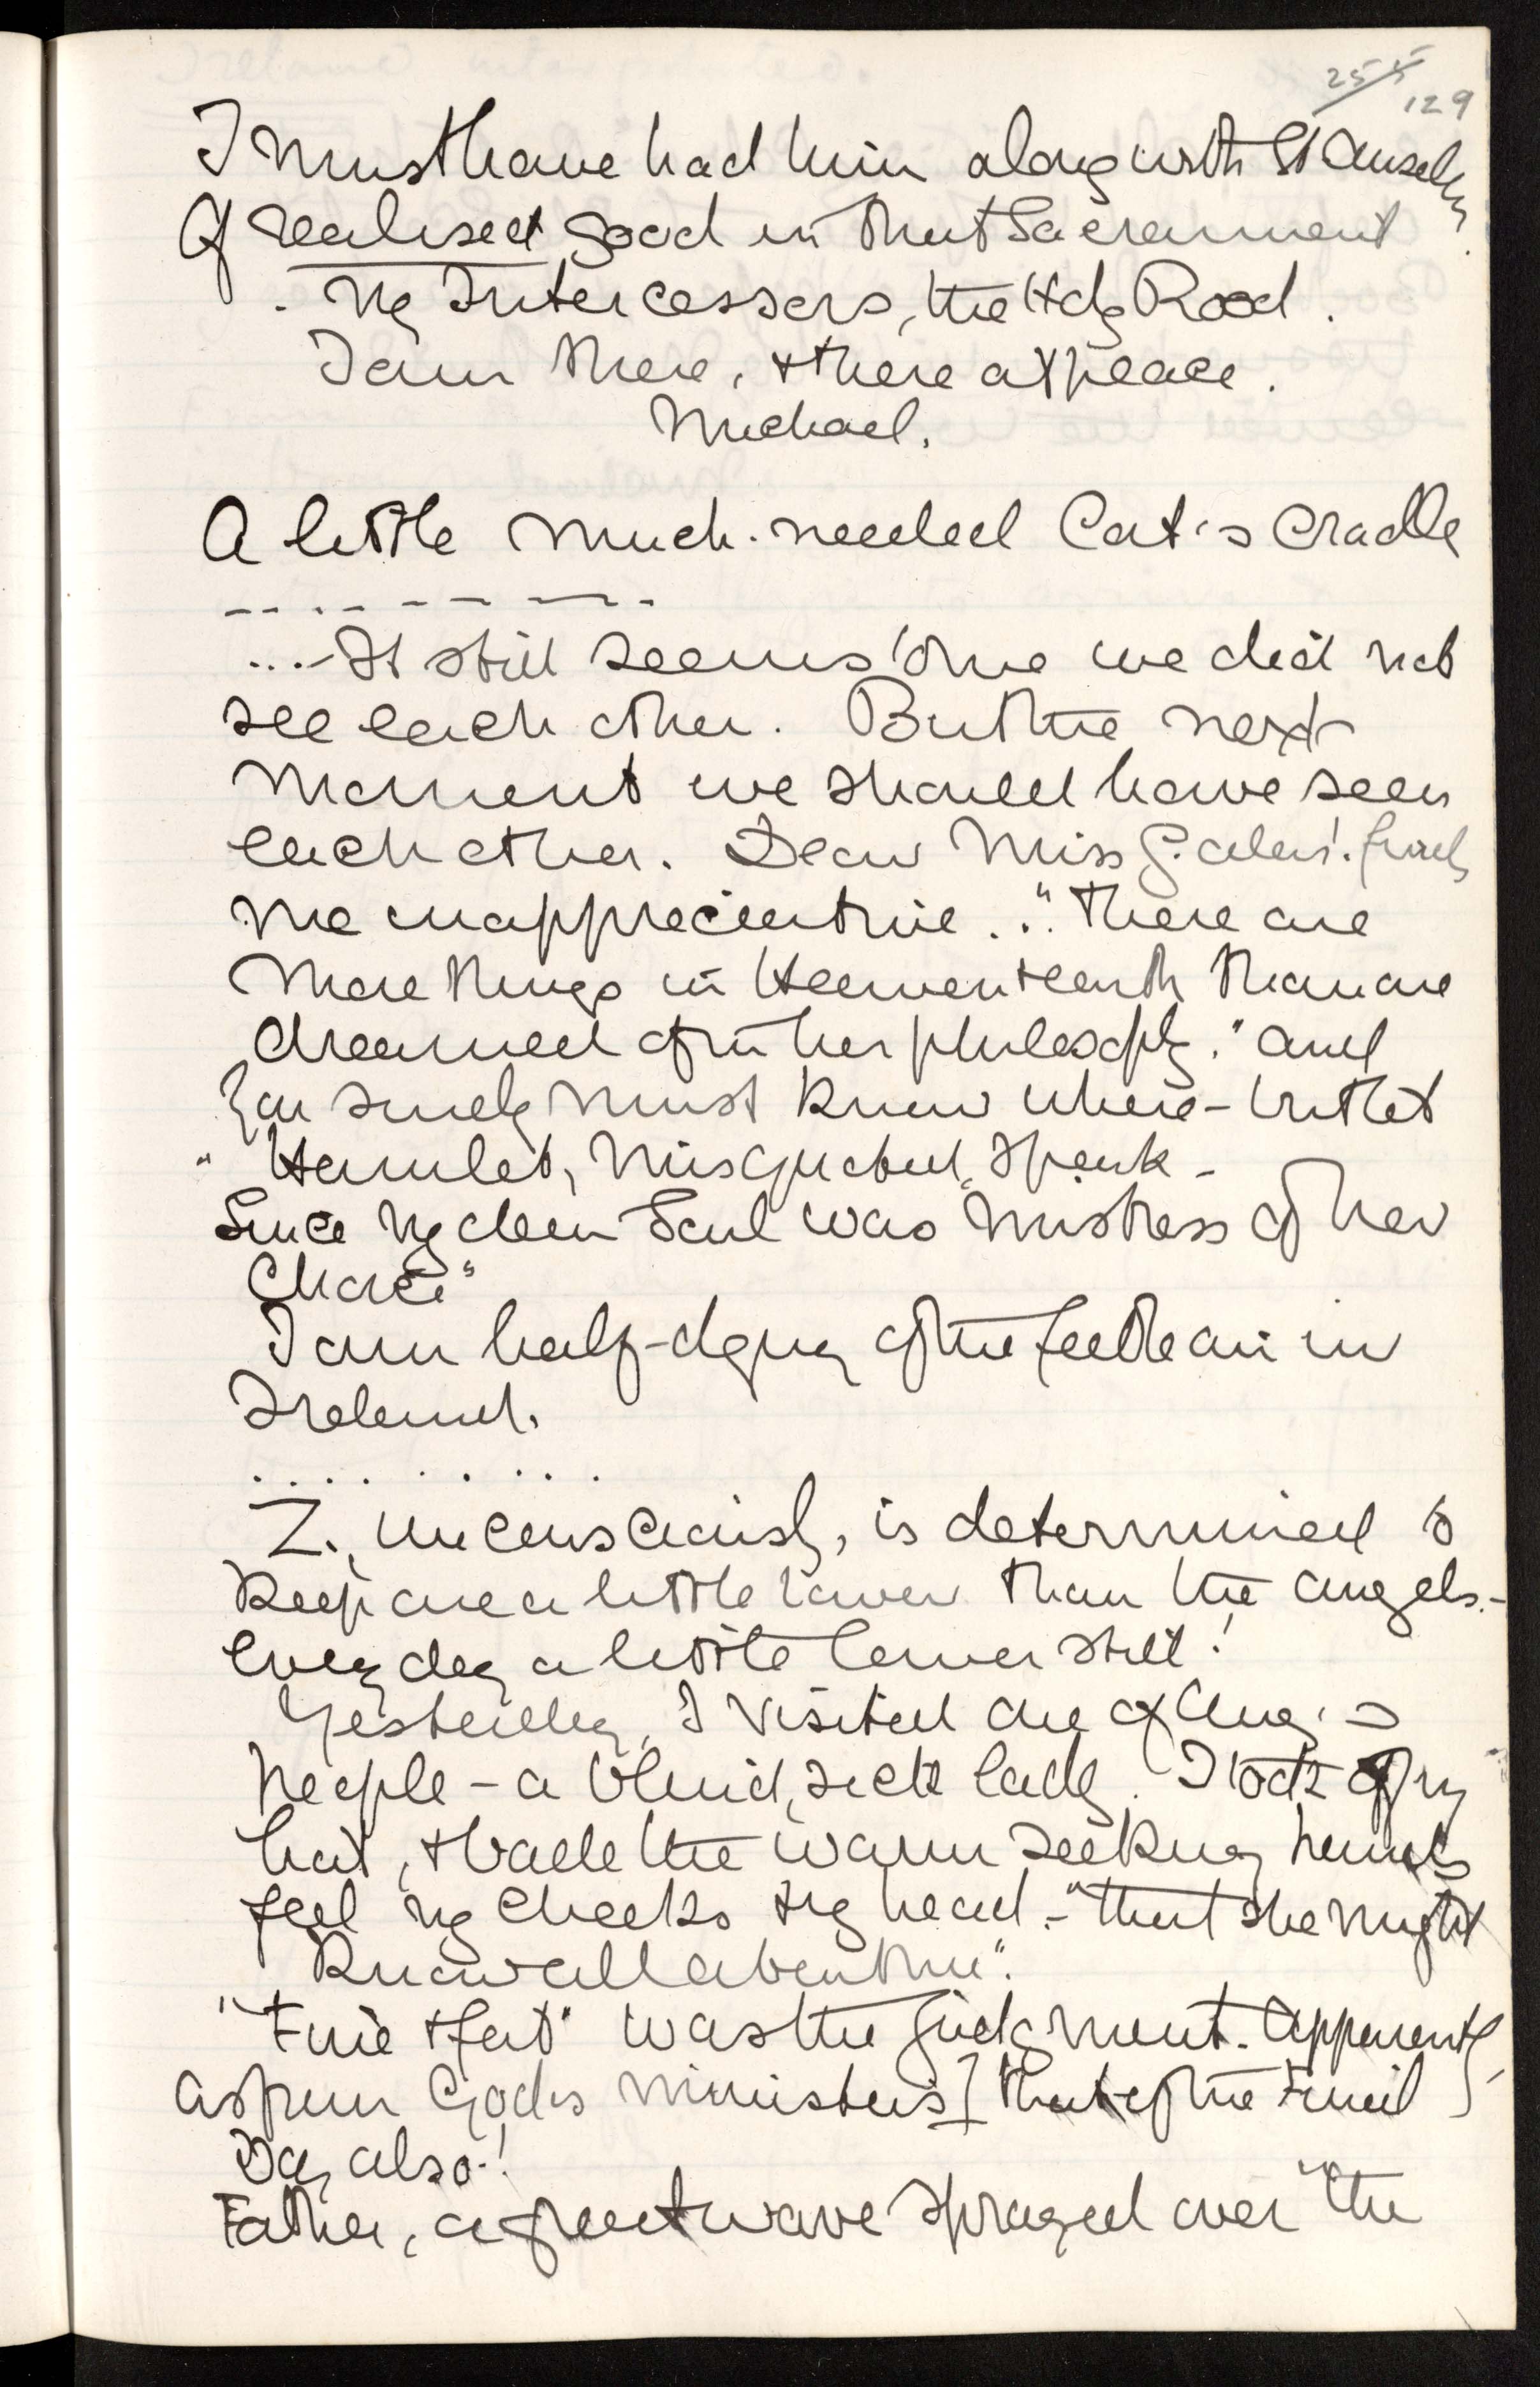 255
129
I must have had him along with St Anselm.
Of realised good in that Sacrament
. My Intercessors, the Holy Rood.
I am there, & there at peace.
Michael.
A little much-needed Cat's Cradle
...- It still seems to me we did not
see each other. But the next
moment we should have seen
each other. Dear Miss finds
me inappreciative... "There are
more things in Heaven & earth than are
dreamed of in her philosophy." And
you surely must know where - but let
" Hamlet, misquoted, speak -
Since my dear Soul was Mistress of her
Choice"
I am half-dying of the feeble air in
Ireland.
. . . . . . . .
Z., unconsciously, is determined to
keep one a little lower than the angels. -
Every day a little lower still!
Yesterday, I visited one of Amy's
people - a blind, sick lady. I took off my
hat, & bade the warm seeking hands
feel my cheeks & my head - "that she might
know all about me".
"Fine & fat" was the judgment. Apparently
as from God's ministers [that of the Final
Day also!
Father, a great wave sprayed over the